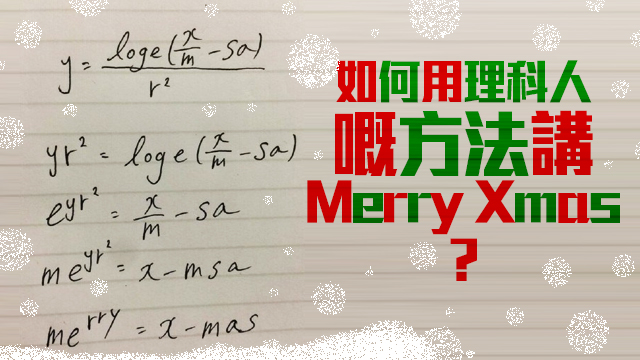 y = loge(x/m - sa) / r²
yr² = loge(x/m - sa)
e^yr² = x/m - sa
me^yr² = x - msa
me^rry = x - mas
如何用理科人
嘅方法講
Merry Xmas
?